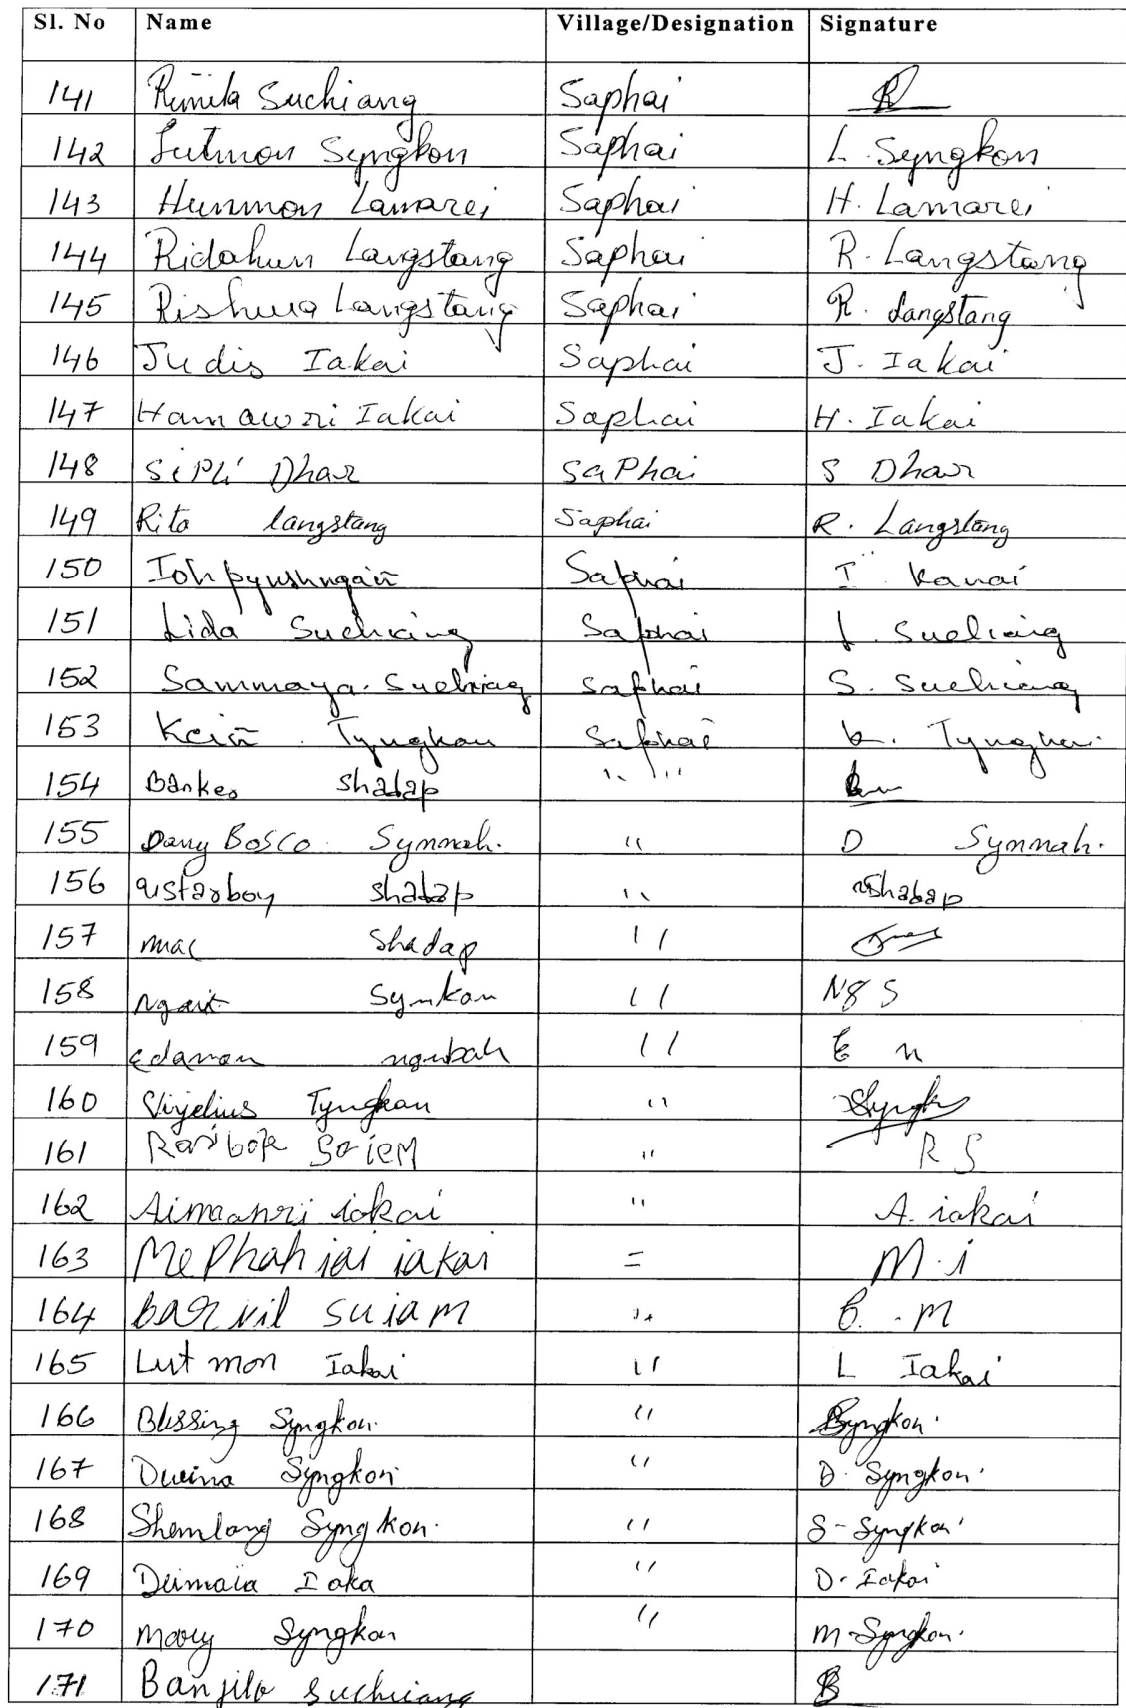 Sl. No Name Village/Designation Signature
141 Rimila Suchiang Saphai R
142 Lutmon Syngkon Saphai L. Syngkon
143 Hunmon Lamarei Saphai H. Lamarei
144 Ridahun Langstang Saphai R. Langstang
145 Rishwa Langstang Saphai R. Langstang
146 Judis Iakai Saphai J. Iakai
147 Hamawri Iakai Saphai H. Iakai
148 SiPli Dhar SaPhai S Dhar
149 Rita langstang Saphai R. Langstang
150 Saphai I Kanai
151 Lida Suchiang Saphai L. Suchiang
152 Sammaya. Suchiang Saphai S. Suchiang
153 Tyngkan Saphai K.
154 Bankeo Shadap " "
155 Dany BOSCO. Symnah. " D Symnah.
156 shadap " Shadap
157 mac Shadap "
158 Ngait Symkon " Ng S
159 Edamon ngubah " E n
160 Virjelius Tyngkan "
161 SoiieM " R S
162 Aimanri iakai " A. iakai
163 MePhah iai iakai = M. i
164 barvil suiam " B. . M
165 Lut mon Iakai " L Iakai
166 Blessing Syngkon. " Syngkon.
167 Dwina Syngkon " D. Syngkon.
168 Shemlang Syngkon. " S- Syngkon
169 Deimaia Iaka " D. Iakai
170 Mary Syngkon " M-Syngkon.
171 Banjilo Suchiang B